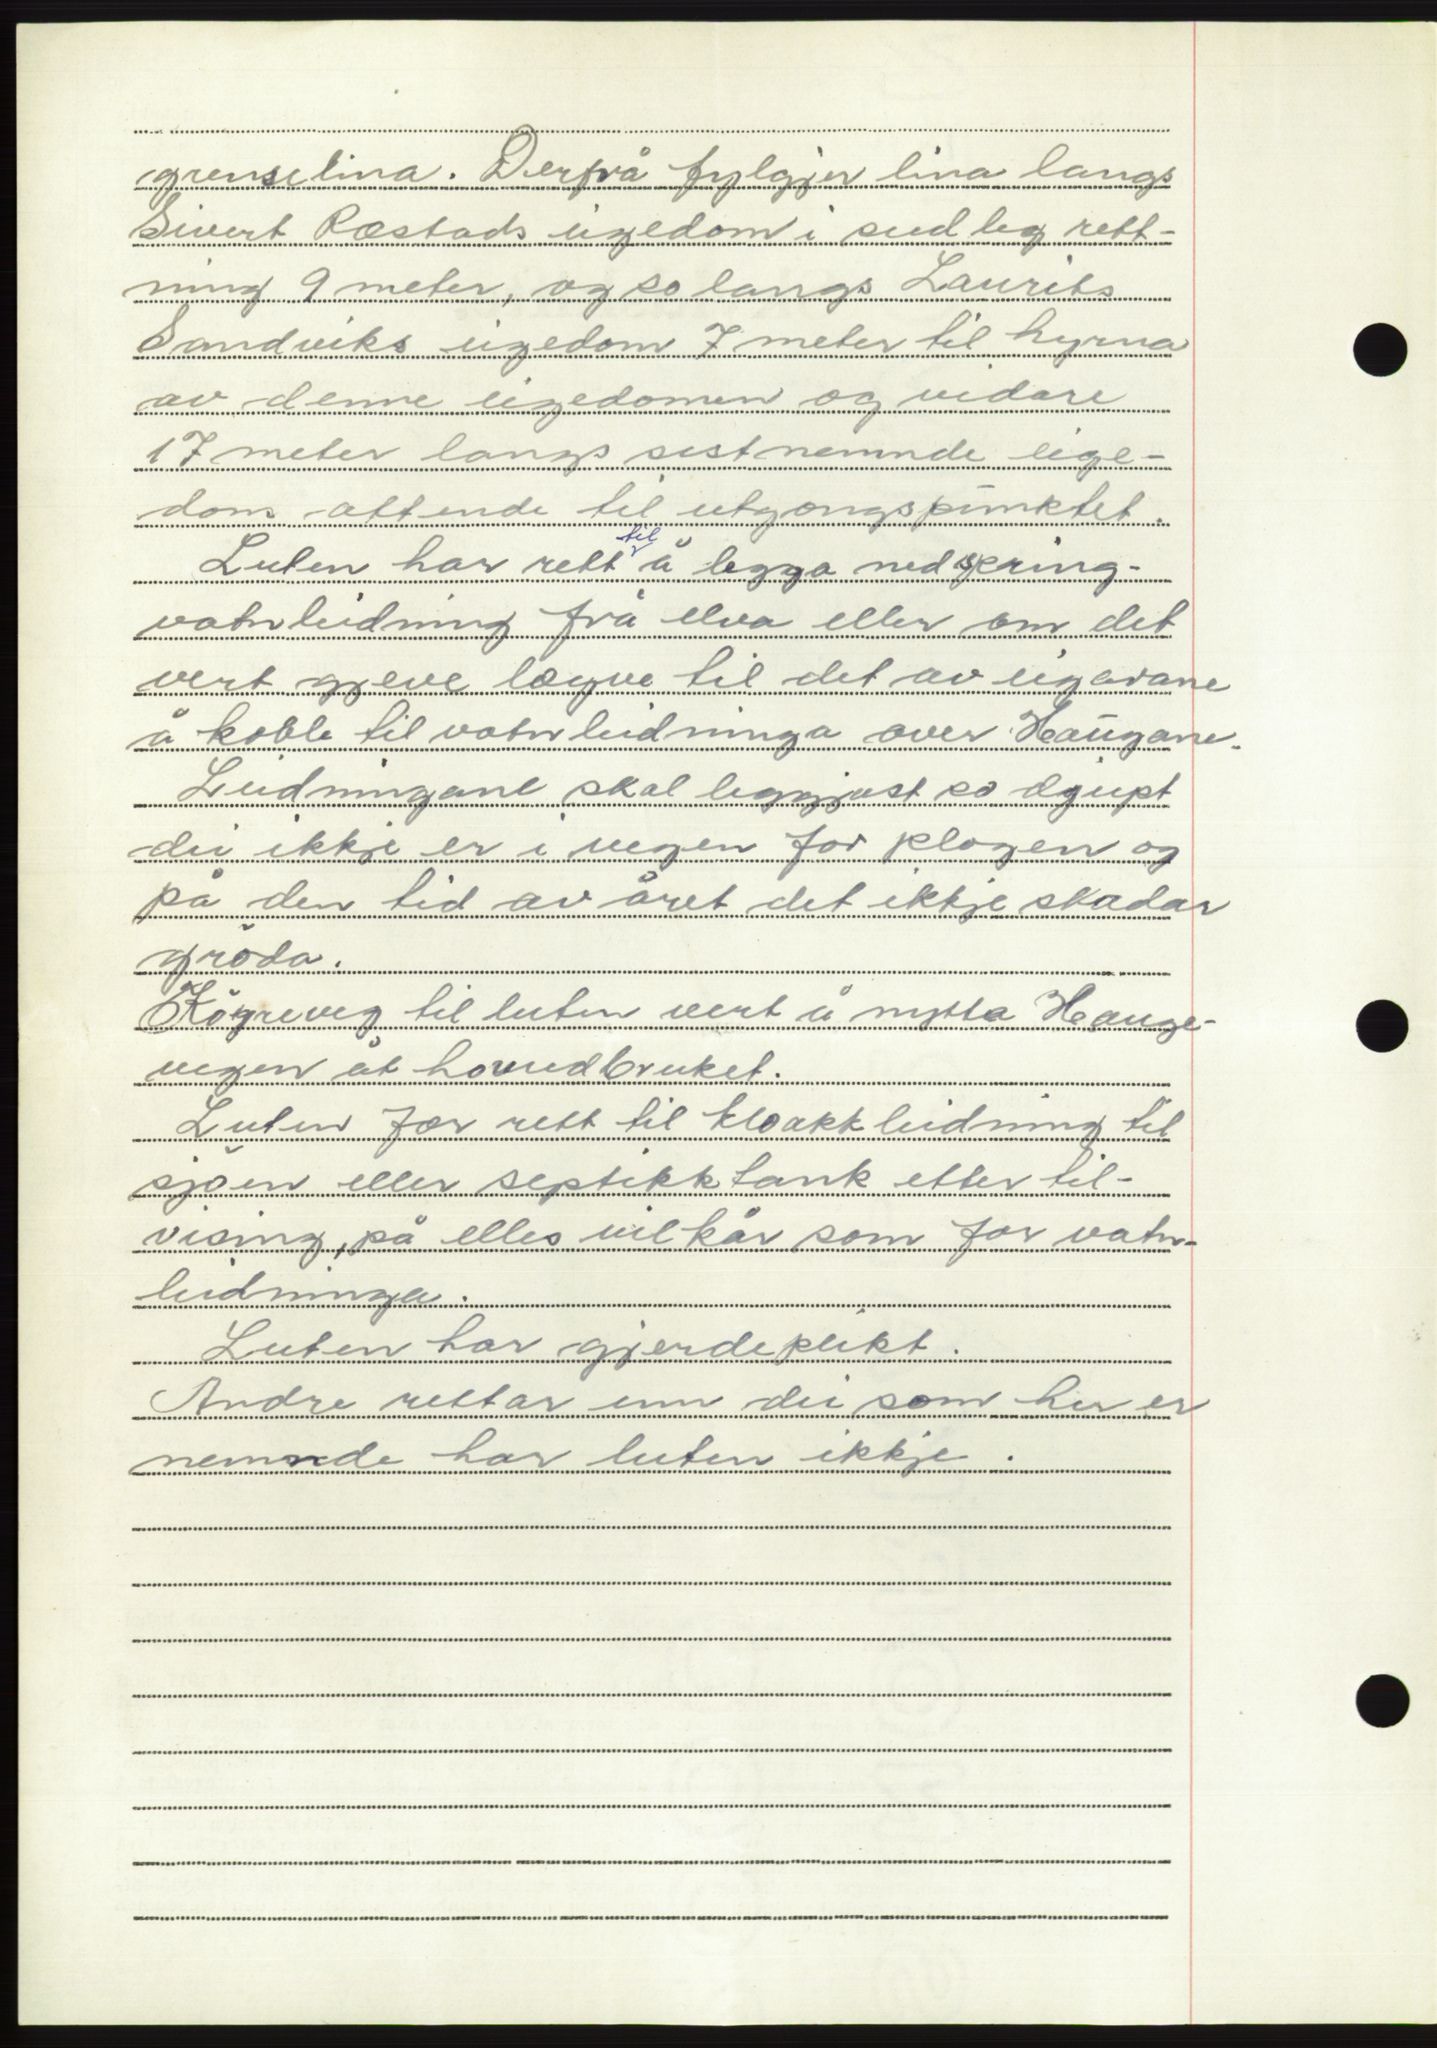 grenselina. Derfrå fylgjer lina langs
Sivert Ræstads eigedom i sudleg rett-
ning 9 meter, og so langs Laurits
Sandviks eigedom 7 meter til hyrna
av denne eigedomen og vidare
17 meter langs sistnemnde eige-
dom attende til utgongspunktet.
Luten har rett til å legga ned spring-
vatnleidning frå elva eller om det
vert gjeve løyve til det av eigarane
å koble til vatnleidninga over Haugane.
Leidningane skal leggjast so djupt
dei ikkje er i vegen for plogen og
på den tid av året det ikkje skadar
gröda.
Köyreveg til luten vert å nytta Hauge-
vegen åt hovudbruket.
Luten fær rett til kloakkleidning til
sjöen eller septikktank etter til-
vising, på elles vilkår som for vatn-
leidninga.
Luten har gjerdeplikt.
Andre rettar enn dei som her er
nemnde har luten ikkje.